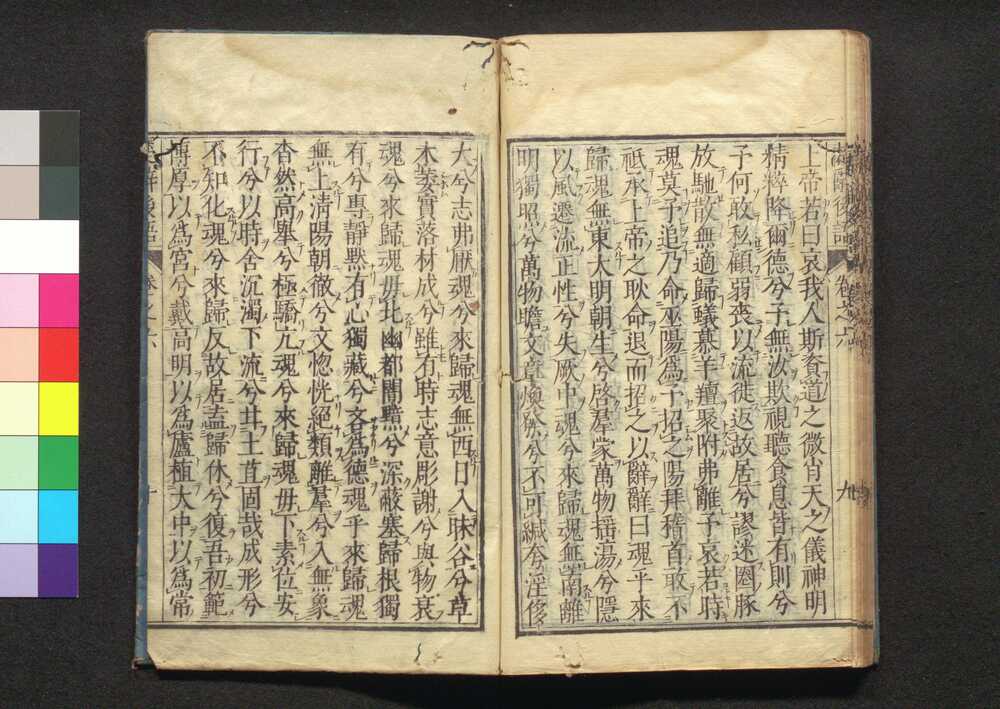 楚辭後語 卷之六 九
上帝若曰哀我人斯資道之微肖天之儀神明
精粹降爾德兮予無汝欺視聽食息皆有則兮
予何敢私顧弱喪以流徙返故居兮謬迷圈豚
放馳散無適歸蟻慕羊羶聚附弗離予哀若時
魂莫予追乃命巫陽爲予招之陽拜稽首敢不
祗承上帝之耿命退而招之以辭辭曰魂乎來
歸魂無東大明朝生兮啓羣蒙萬物搖蕩兮隱
以風遷流正性兮失厥中魂兮來歸魂無南離
明獨照兮萬物瞻文章煥發兮不可緘夸淫侈
大兮志弗厭魂兮來歸魂無西日入昧谷兮草
木萎實落材成兮雖有時志意彫謝兮與物衰
魂兮來歸魂毋北幽都闇黯兮深蔽塞歸根獨
有兮專靜默有心獨藏兮吝爲德魂乎來歸魂
無上清陽朝徹兮文惚恍絕類離羣兮入無象
杳然高擧兮極驕亢魂兮來歸魂毋下素位安
行兮以時舍沉濁下流兮甘土苴固哉成形兮
不知化魂兮來歸反故居盍歸休兮復吾初範
博厚以爲宮兮戴高明以爲廬植大中以爲常
楚辭後語 卷之六 十